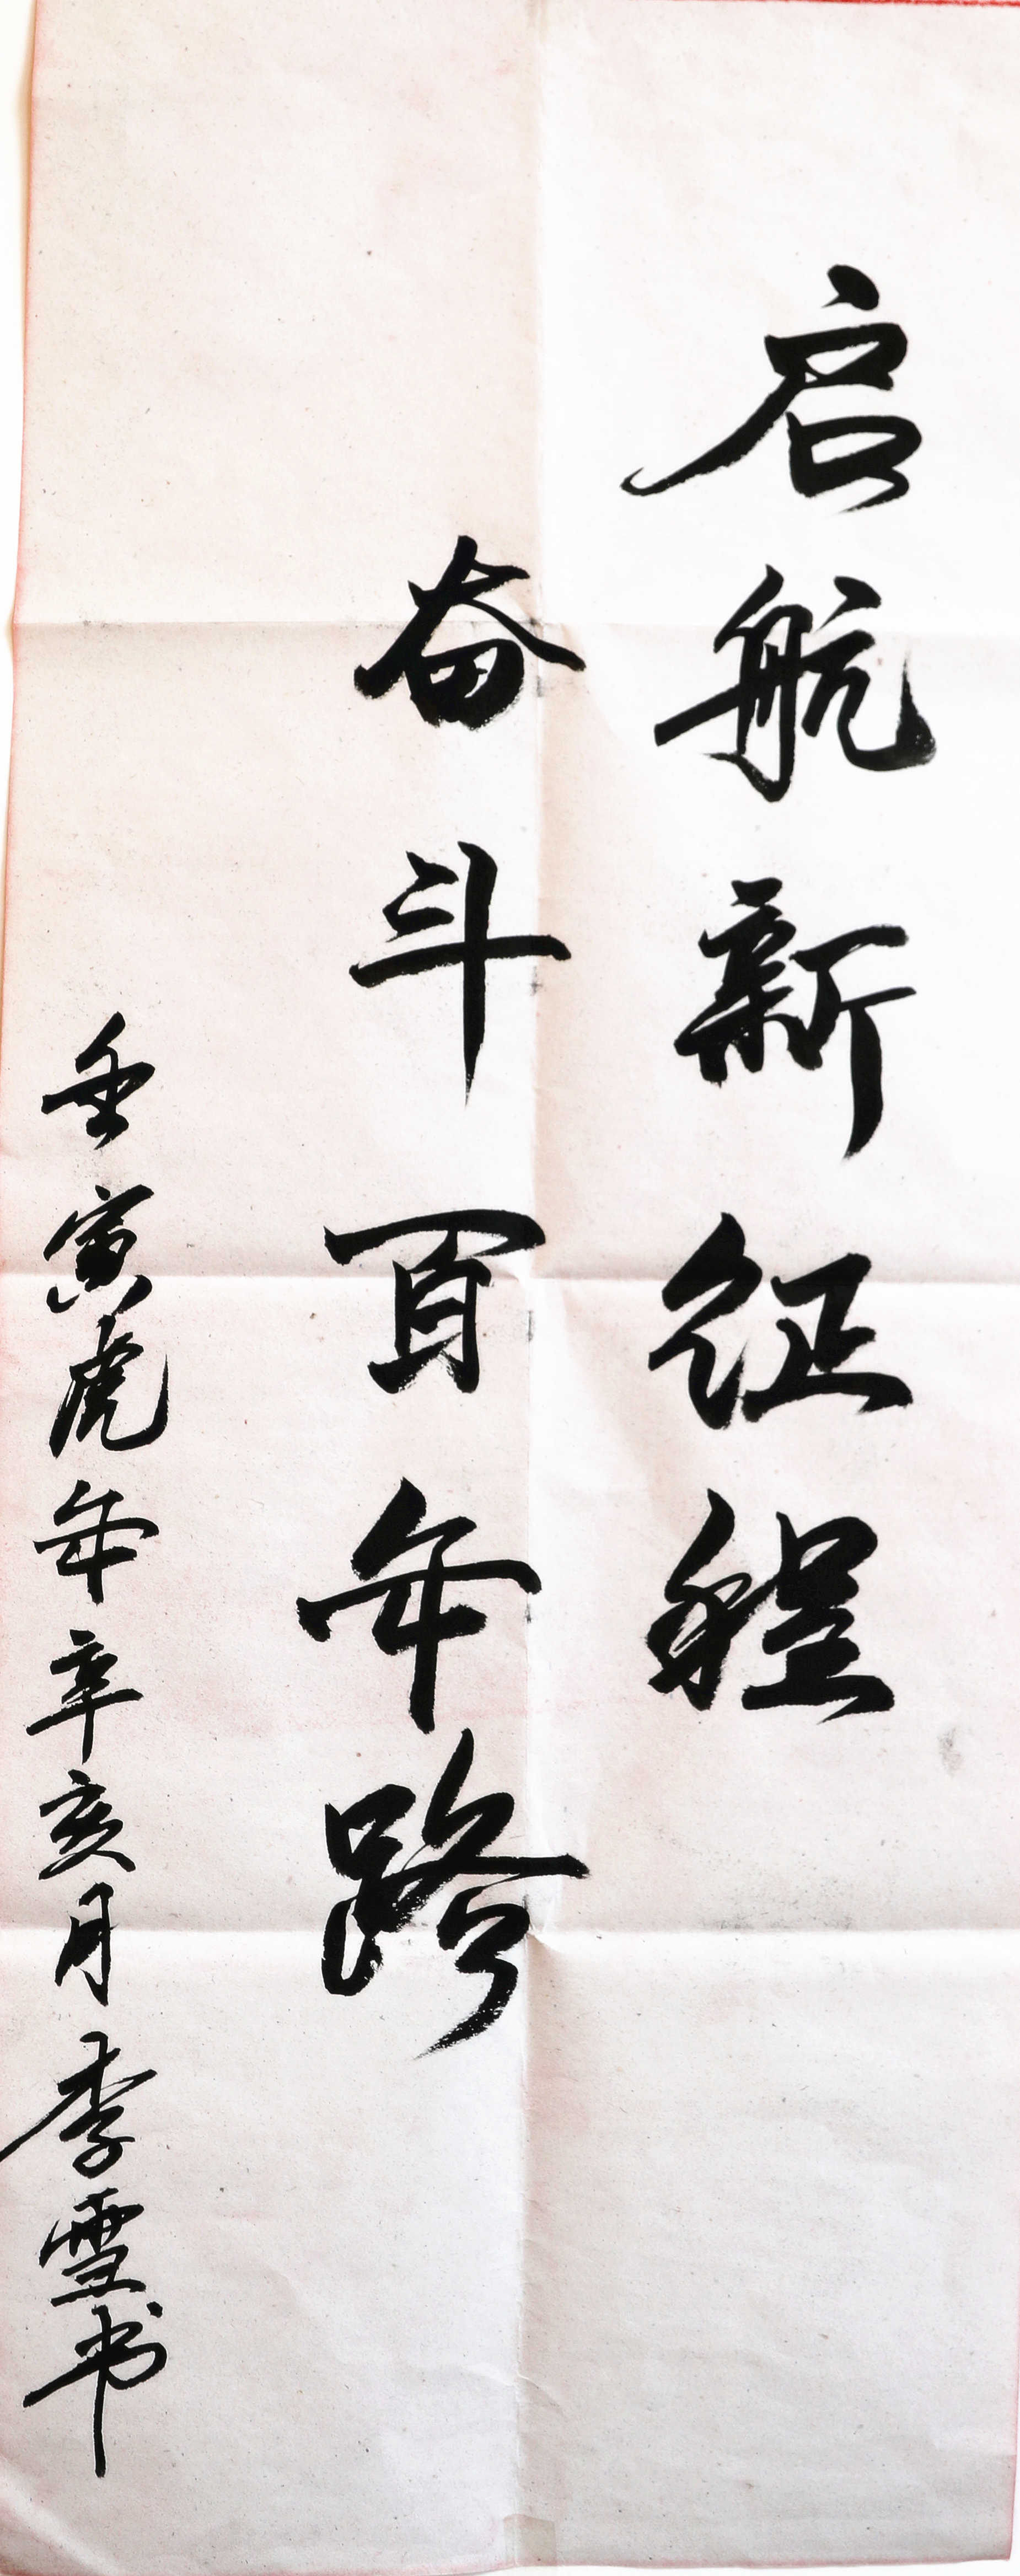 启航新征程
奋斗百年路
壬寅虎年辛亥月李雪书